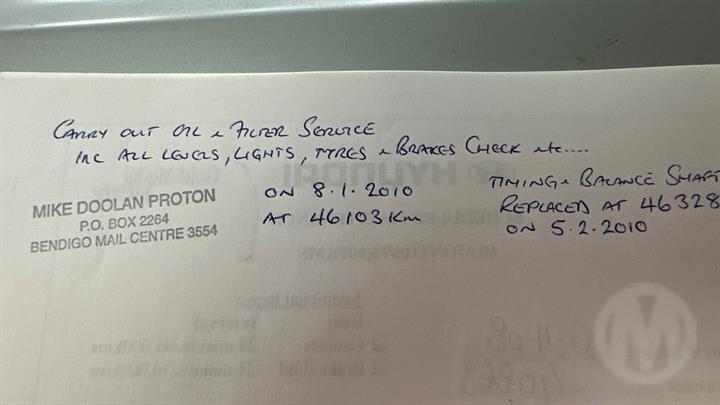 CARRY OUT OIL & FILTER SERVICE
INC ALL LEVELS, LIGHTS, TYRES & BRAKES CHECK etc....
MIKE DOOLAN PROTON
P.O. BOX 2264
BENDIGO MAIL CENTRE 3554
ON 8.1.2010
AT 46103 Km
TIMING & BALANCE SHAFT
REPLACED AT 46328
ON 5.2.2010
M